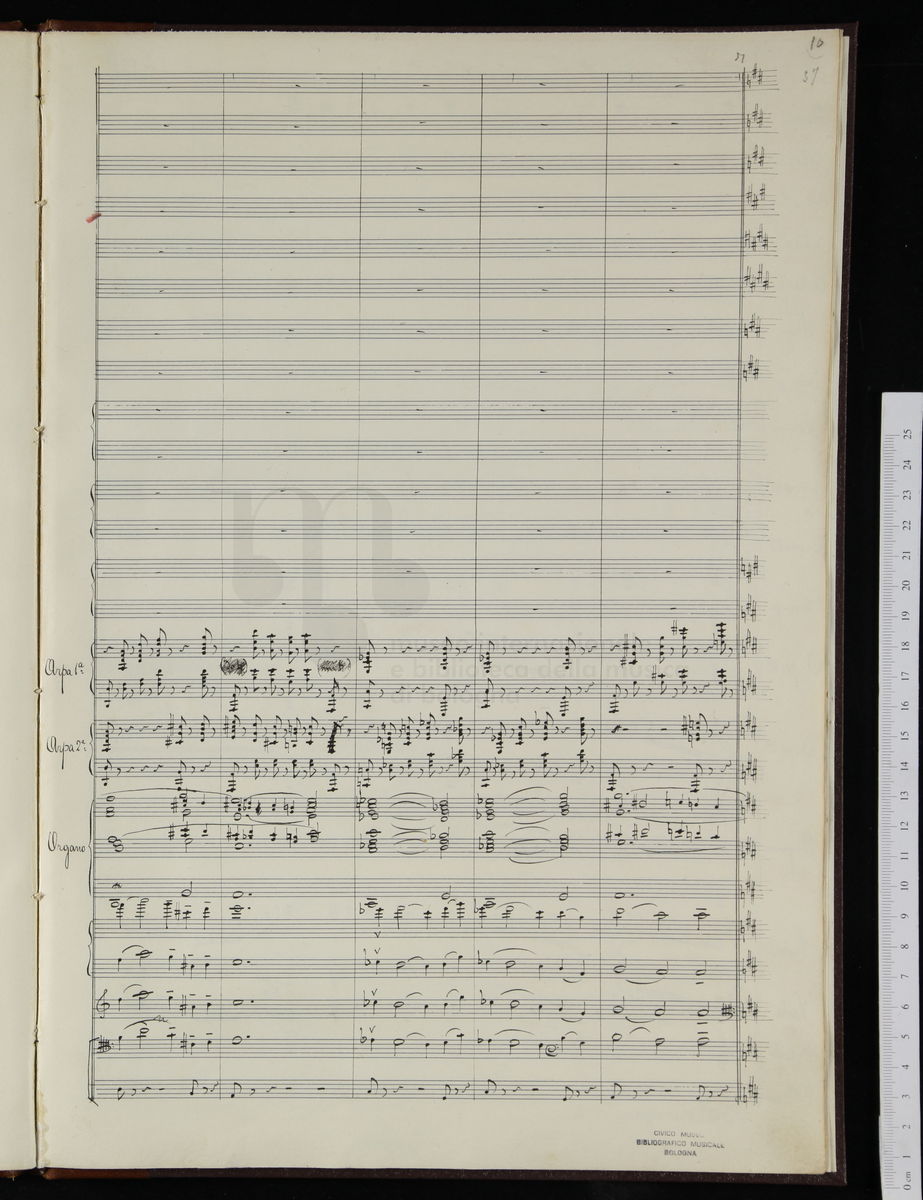 10
37
37
Arpa 1ª
museo internazionale
e biblioteca della musica
di bologna
Arpa 2ª
Organo
CIVICO MUSEO
BIBLIOGRAFICO MUSICALE
BOLOGNA
25
24
23
22
21
20
19
18
17
16
15
14
13
12
11
10
9
8
7
6
5
4
3
2
1
0 cm